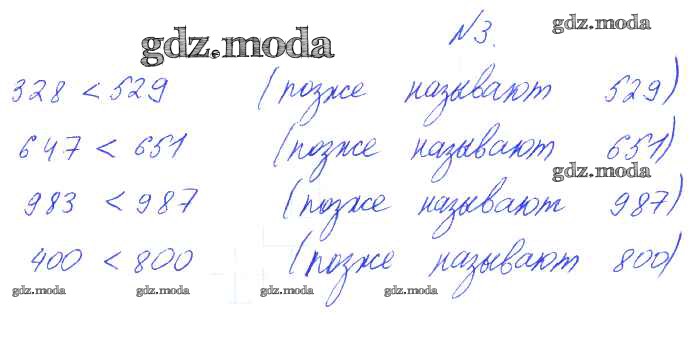 №3.
gdz.moda
gdz.moda
328 < 529 (позже называют 529)
647 < 651 (позже называют 651)
gdz.moda
983 < 987 (позже называют 987)
400 < 800 (позже называют 800)
gdz.moda gdz.moda gdz.moda gdz.moda gdz.moda